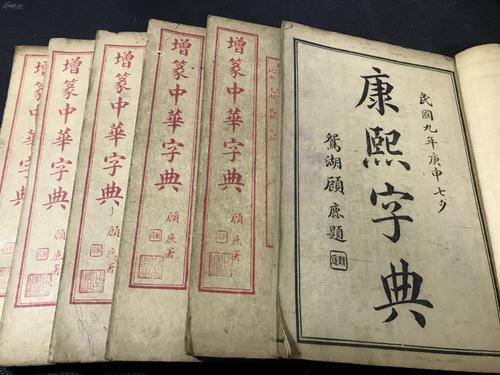 增篆中華字典
增篆中華字典
顧廉
增篆中華字典
顧廉署
增篆中華字典
顧廉署
增篆中華字典
顧廉署
民國九年庚申七夕
康熙字典
鴛湖顧廉題